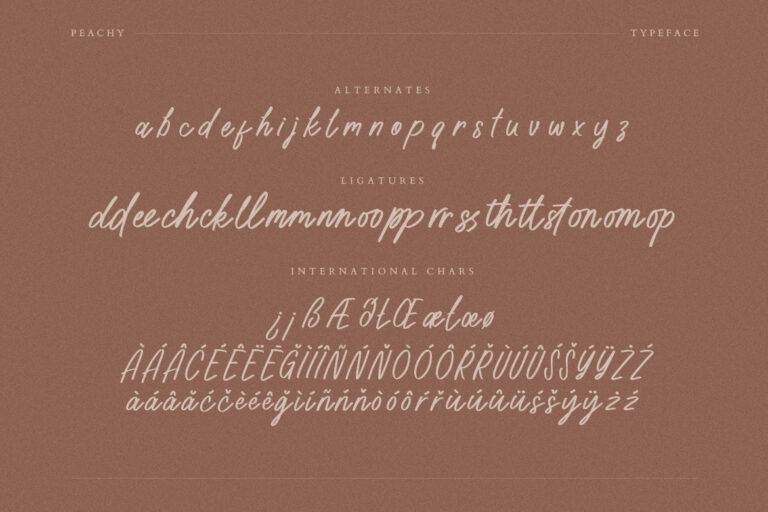 PEACHY TYPEFACE
ALTERNATES
a b c d e f h i j k l m n o p q r s t u v w x y z
LIGATURES
ddeechckllmmnnoopprrssthttstonomop
INTERNATIONAL CHARS
¿¡ßÆØŁŒæłœø
ÀÁÂĆÉÊËĒĞÌÍÎÑŃŇÒÓÔŔŘÙÚÛŚŠÝŸŻŹ
àáâãćčèéêğìíñńňòóôŕřùúûüśšýÿżź